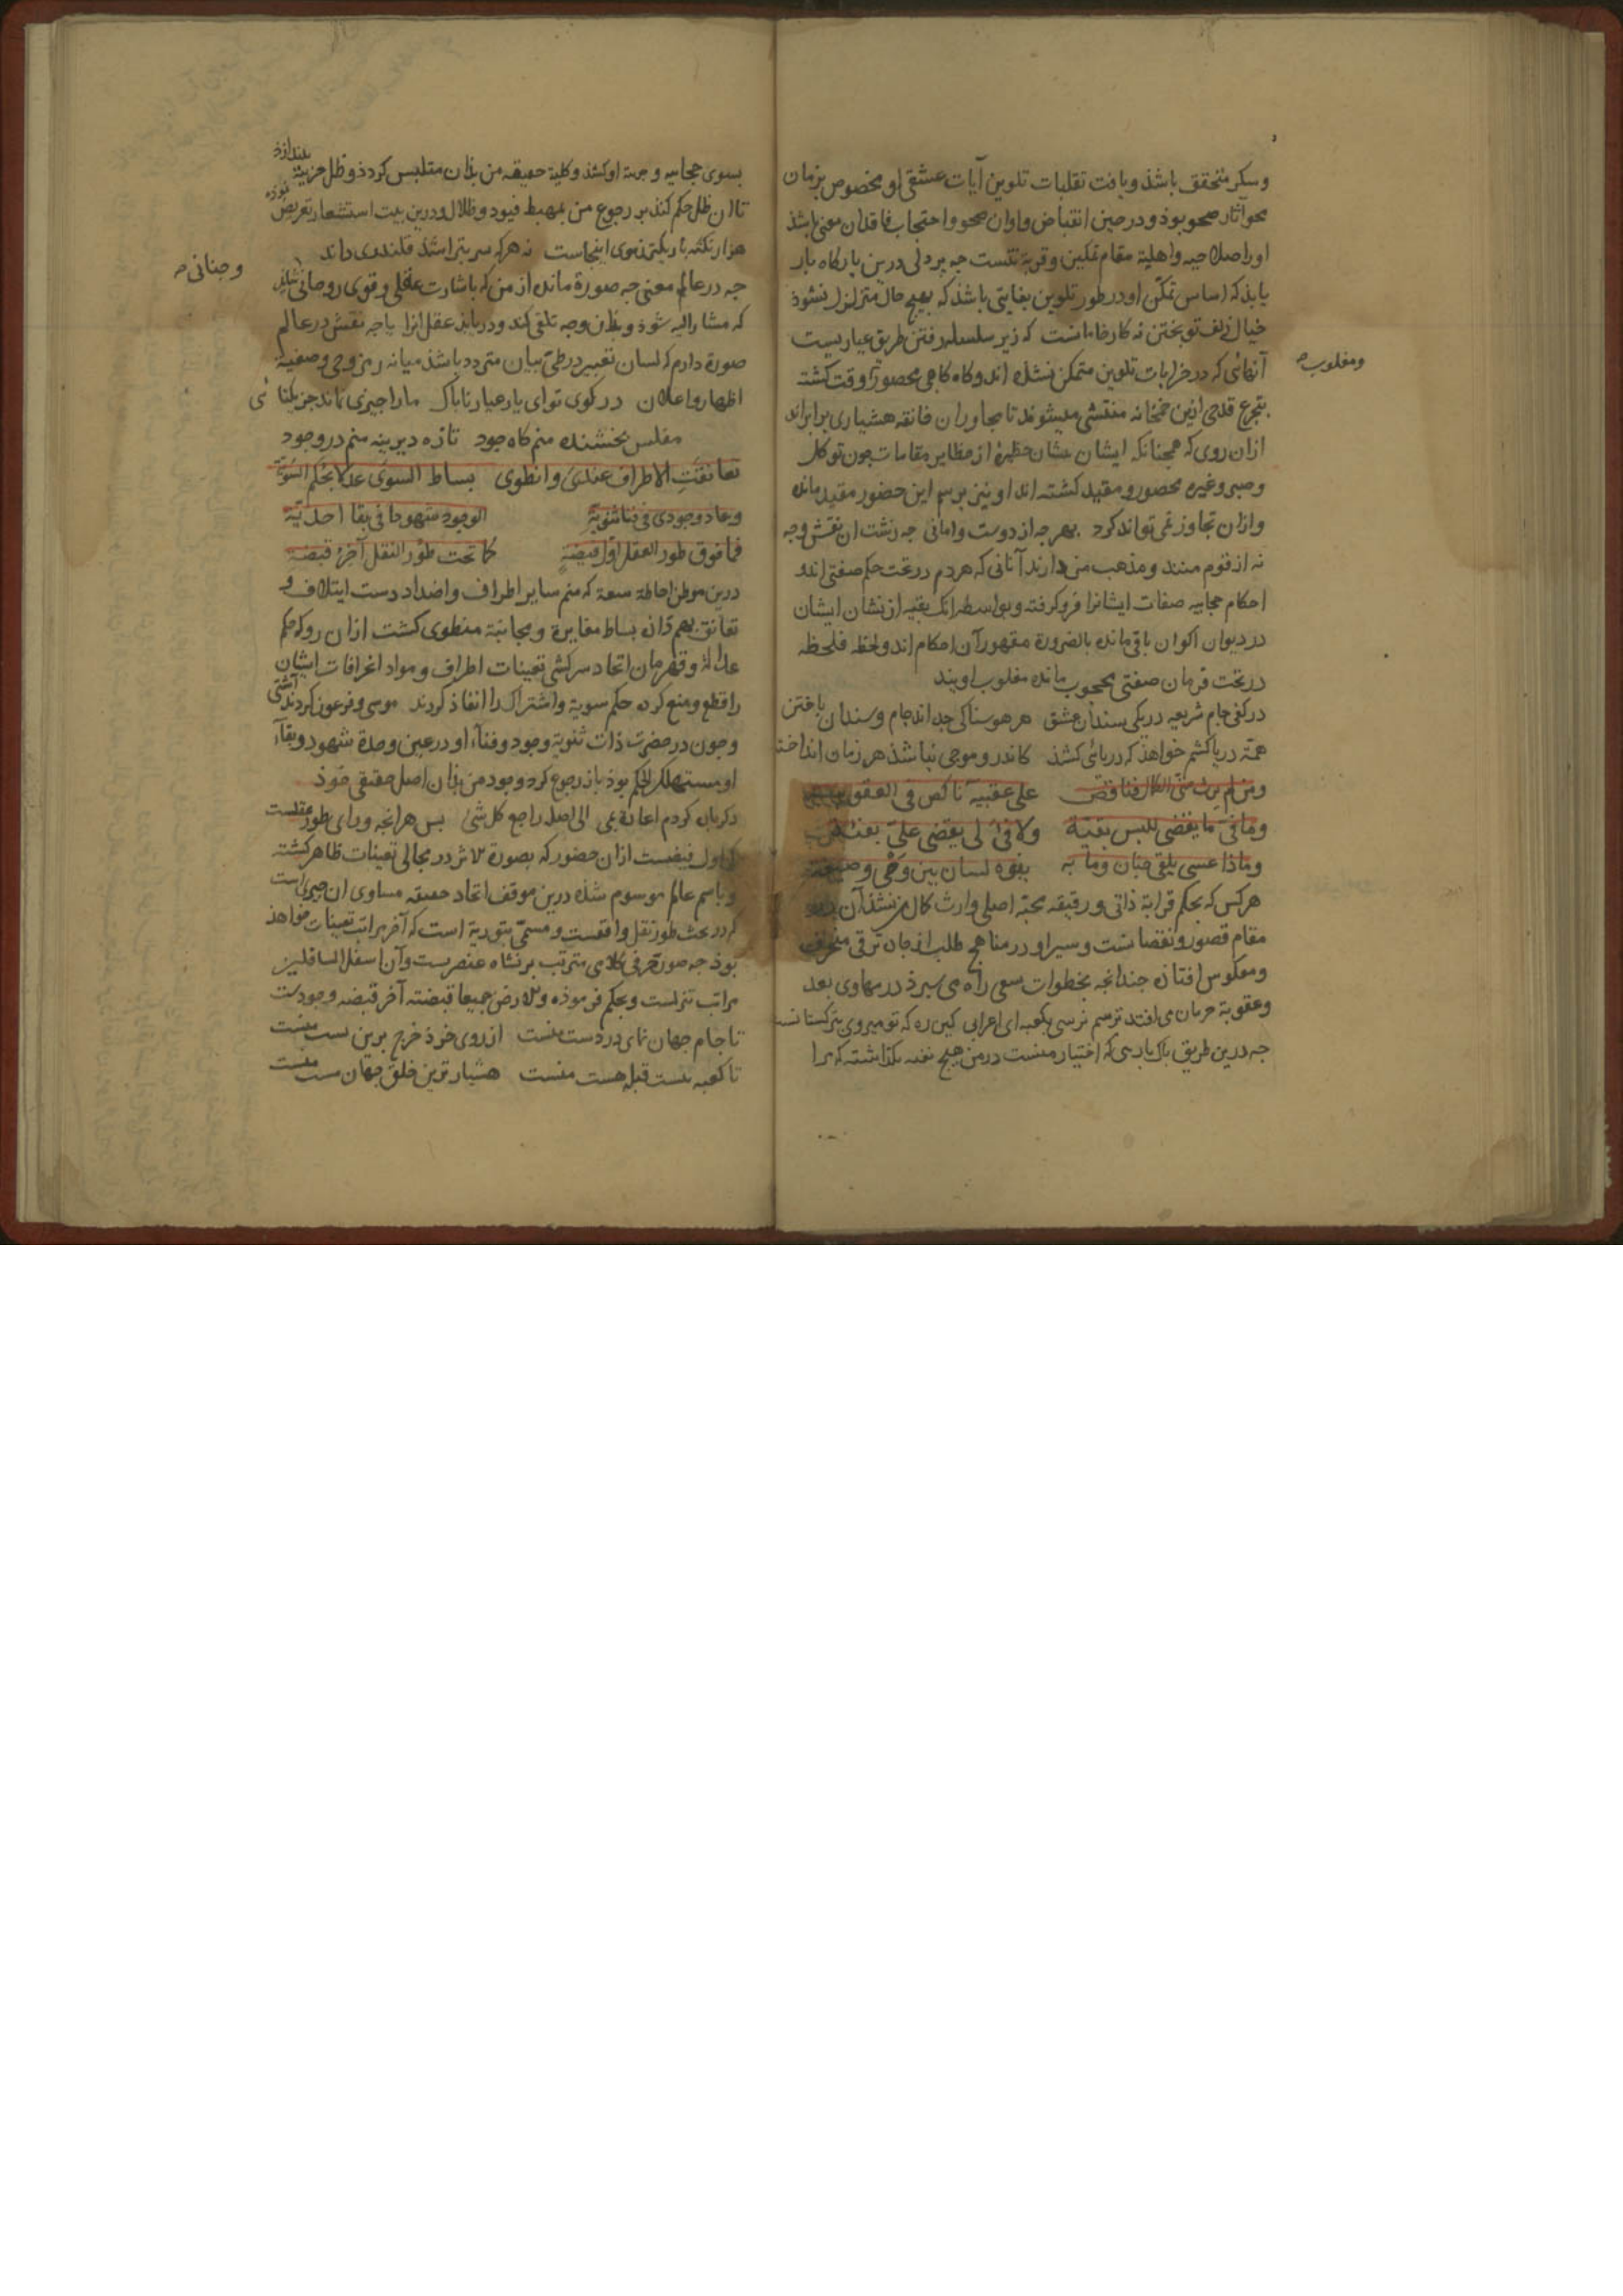 وسکر متحقق باشذ و یافت تقلبات تلوین آیات عشقی او مخصوص بزمان
محو آثار صحو بوذ و در حین انقباض و اوان صحو و احتجاب فاقد ان معنی باشذ
او را صلاحیه و اهلیة مقام تمکین و قربة نیست جه بردلی درین بارکاه بار
یابذ که اساس تمکن او در طور تلوین بغایتی باشذ که بهیچ حال متزلزل نشوذ
خیال زلف تو بختن نه کار خامانست که زیر سلسله رفتن طریق عیاریست
آنهائی که در خرابات تلوین متمکن نشده اند و کاه کاهی محصور وقت کشته
بتجرع قدحی ازین خمخانه منتشی میشوند تا مجاوران خانقه هشیاری برابراند
ازان روی که همچنانکه ایشان بشان حظیرهٔ از حظایر مقامات چون توکل
وصبر و غیره محصور و مقید کشته اند او نیز برسم این حضور مقید مانده
و ازان تجاوز نمی تواند کرد بهر جه از دوست وامانی جه زشت ان نقش و جه
نه از قوم منند و مذهب من دارند آنانی که هر دم در تحت حکم صفتی اند و
احکام حجابیه صفات ایشانرا فرو کرفته و بواسطه انک بقیه از نشان ایشان
در دیوان اکوان باقی مانده بالضرورة مقهور آن احکام اند و لحظه فلحظه
در تحت فرمان صفتی محجوب مانده مغلوب اویند
ومغلوب
در کفی جام شریعه در یکی سندان عشق هر هوسناکی جه داند جام و سندان باختن
همة دریا کشم خواهذ که دریائی کشذ کاندرو موجی نباشذ هر زمان انداختن
ومن لم یرث منی الکمال فناقص علی عقبیه ناکص فی العقوبة
وما فی ما یفضی للبس بقیة ولا فیٔ لی یقضی علی بفیئة
وماذا عسی یلقی جنان وما به یفوه لسان بین وحی وصیغة
هرکس که بحکم قرابة ذاتی و رقیقه محبة اصلی وارث کمال من نشذ آن
مقام قصور و نقصانست و سیر او در مناهج طلب از جان ترقی منحرف
ومعکوس افتاذه جندانجه بخطوات سعی راه می سپرذ در مهاوی بعد
وعقوبة حرمان می افتد ترسم نرسی بکعبه ای اعرابی کین ره که تو میروی بترکستانست
جه درین طریق باکبازی که اختیار منست در من هیچ بقیه نکذاشته که مرا
بسوی حجابیه و جهة او کشذ و کلیة حقیقه من بذان متلبس کردذ و ظل جزییة
تا ان ظل حکم کنذ بر رجوع من بمهبط قیود و ظلال و درین بیت استشعار تعریض
هزار نکته باریکتر ز موی اینجاست نه هرکه سر بتراشذ قلندری داند
وجنانی
جه در عالم معنی جه صورة مانده از من که باشارت عقلی و قوی روحانی
که مشار الیه شوذ و بذان وجه تلقی کند و دریابذ عقل انرا یا جه نقش در عالم
صورة دارم که لسان تعبیر در طی بیان متردد باشذ میانه رمز وحی و صفیه
اظهار و اعلان در کوی تو ای یار عیار ناباک ما را جیزی نماند جز یکتائی
مفلس بخشنده منم کاه جود تازه دیرینه منم در وجود
تعانقت الاطراف عندی وانطوی بساط السوی عدلا بحکم السویة
وعاد وجودی فی فنا ثنویة الوجود شهودا فی بقا احدیة
فما فوق طور العقل اول فیضة کما تحت طور النقل آخر قبضة
درین موطن احاطة سعة که منم سایر اطراف و اضداد دست ایتلاف و
تعانق بهم دان بساط مغایرة و مجانبة منطوی کشت ازان رو که حکم
عدالة و قهرمان اتحاد سرکشی تعینات اطراف و مواد انحرافات ایشان
را قطع و منع کرده حکم سویة و اشتراک را انفاذ کردند موسی و فرعون کردند آشتی
وجون در حضرت ذات ثنویة وجود و فناء او در عین وحدة شهود و بقاء
او مستهلک الحکم بوذ باز رجوع کرد وجود من بذان اصل حقیقی خوذ
ذکر بار کردم اعادة می الی اصله راجع کل شیٔ بس هرانجه ورای طور عقلست
اول فیضست ازان حضور که بصورة تلاثر در مجالی تعینات ظاهر کشته
و باسم عالم موسوم شده درین موقف اتحاد حقیقه مساوی ان جیزی است
که در تحت طور نقل واقعست و مسمی بتوریة است که آخر مراتب تعینات خواهذ
بوذ جه صورة حرفی کلامی مترتب بر نشاه عنصریست و آن اسفل السافلین
مراتب تنزلست و بحکم فرموذه والارض جمیعا قبضته آخر قبضه وجودست
تا جام جهان نمای در دست منست از روی خرذ خرج برین بست منست
تا کعبه نیست قبله هست منست هشیارترین خلق جهان مست منست